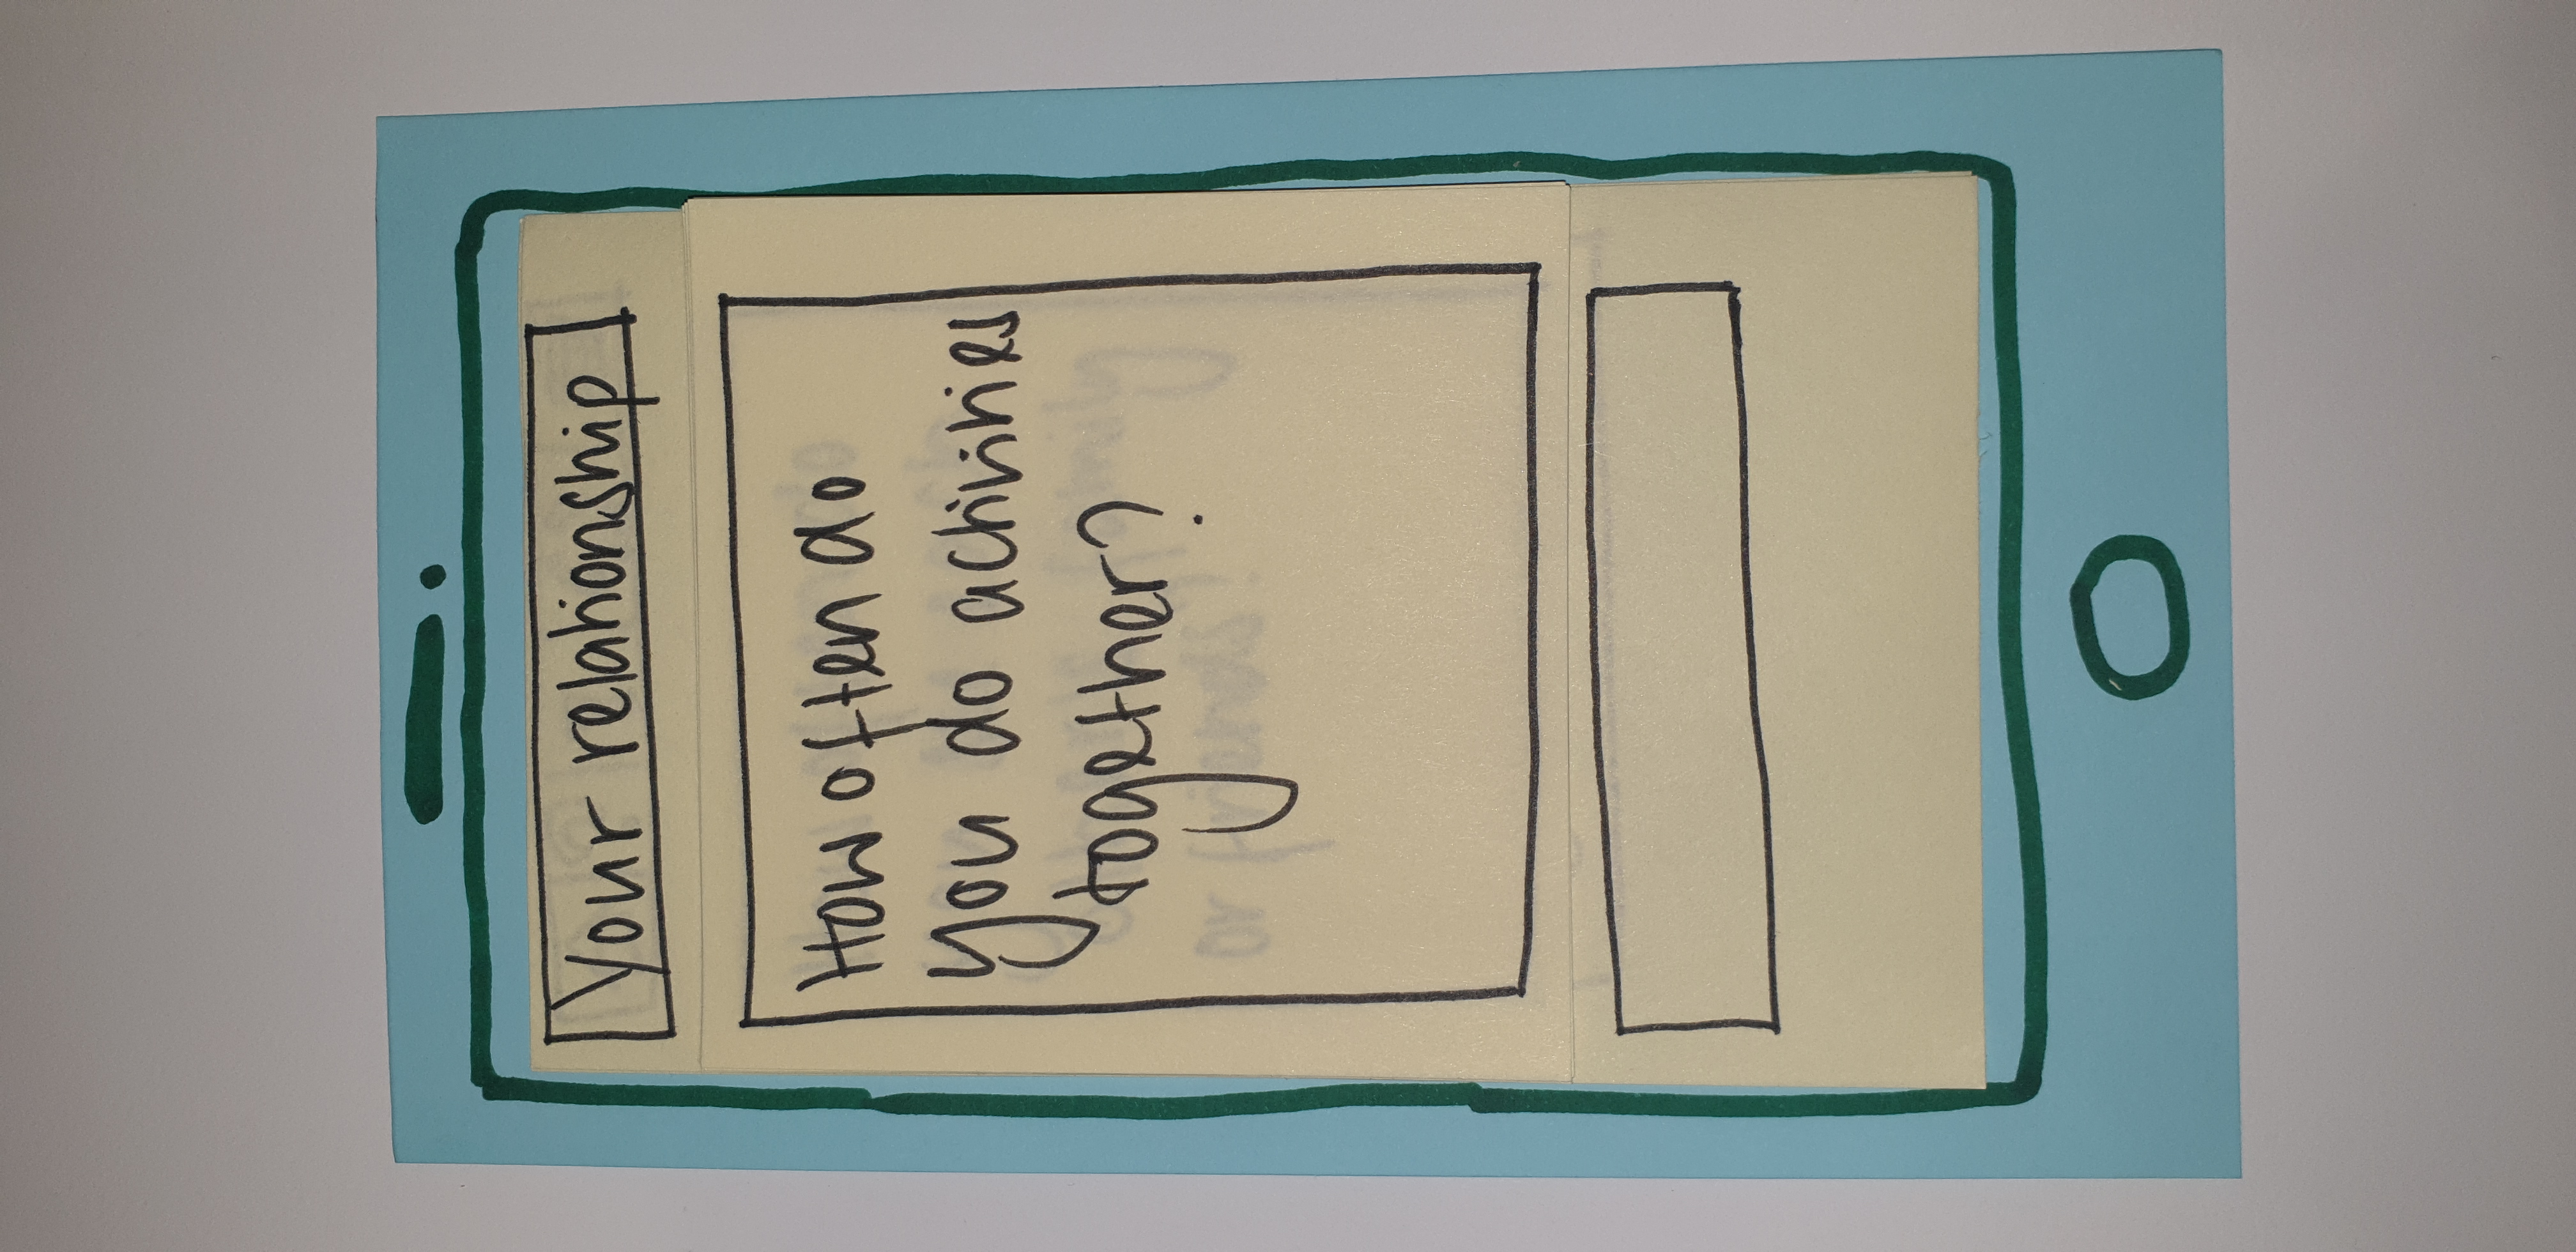 Your relationship
How often do
you do activities
together?
or friends?